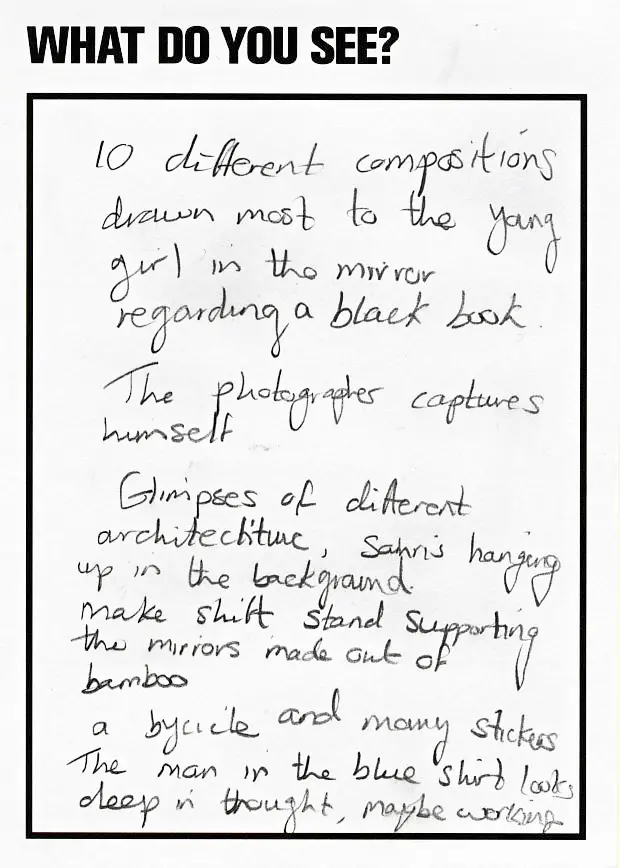 WHAT DO YOU SEE?
10 different compositions
drawn most to the young
girl in the mirror
regarding a black book.
The photographer captures
himself
Glimpses of different
architectiture, Sahris hanging
up in the background.
make shift stand supporting
the mirrors made out of
bamboo
a bycicle and many stickers
The man in the blue shirt looks
deep in thought, maybe working